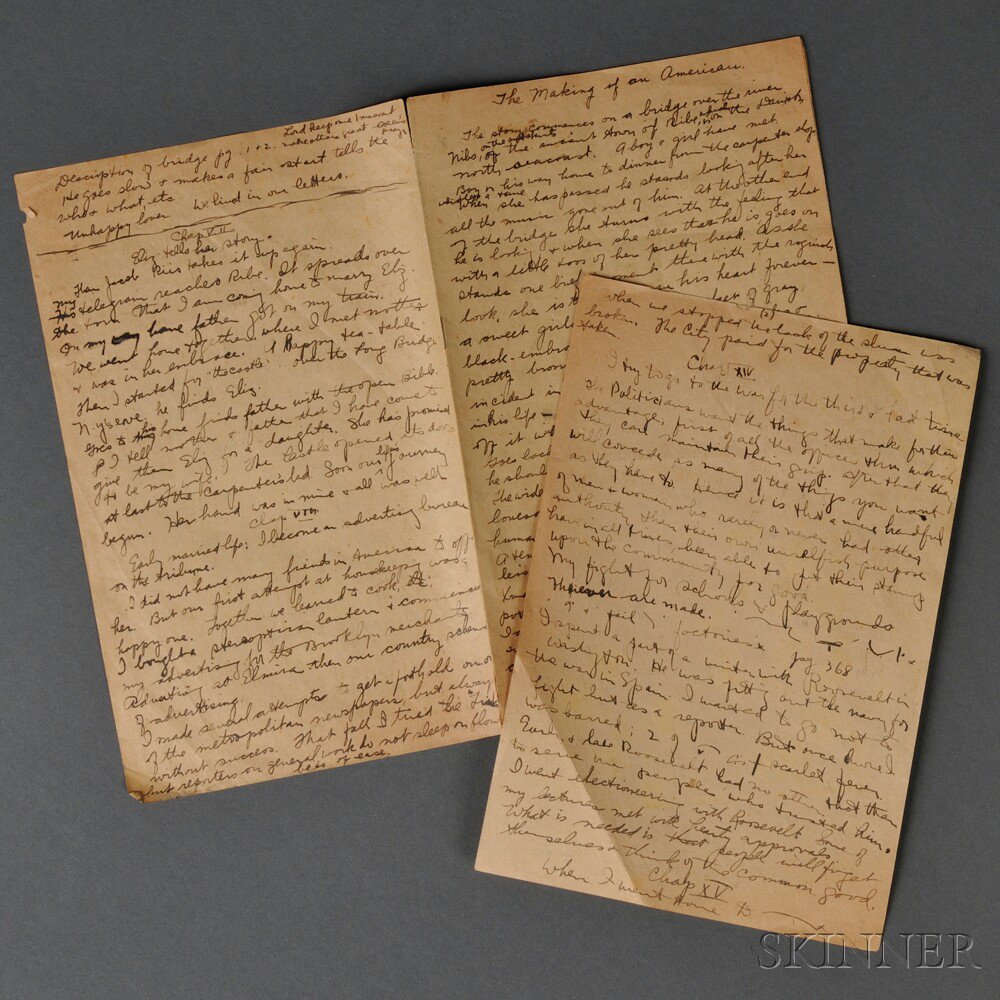 Lord keep me I must
Description of bridge pg. 1 & 2.
He goes slow & makes a fair start tells the
who & what, etc
Unhappy lover. We lived in our letters.
Chap VII
Eliz tells her story.
Then Jacob Riis takes it up again.
My telegram reaches Ribe. It spreads over
the town that I am coming home to marry Eliz.
On my way have father got on my train.
We went home together where I met mother
& was in her embrace. A happy tea-table.
Then I started for "the castle" over the Long Bridge
N. y's eve. he finds Eliz.
Goes to home finds father with the open Bible.
& I tell mother & father that I have come to
give them Eliz for a daughter. She has promised
to be my wife. The Castle opened its doors
at last to the Carpenter's lad. Soon our life's journey
begun. Her hand was in mine & all was well
Chap VIII
Early married life; I become an advertising bureau
on the tribune.
I did not have many friends in America to offer
her. But our first attempt at housekeeping was a
happy one. Together we learned to cook.
I bought a stereopticon lantern & commenced
my advertising for the Brooklyn merchants
Advertising at Elmira then our country scheme
of advertising.
I made several attempts to get a foothold on one
of the metropolitan newspapers, but always
without success. That fall I tried the
but reporters on general work do not sleep on flowery
beds of ease.
The Making of an American.
The story commences on a bridge over the river
on the outskirts
Nibs, of the ancient town of Ribe, on the Danish
north seacoast. A boy & girl have met
Boy on his way home to dinner from the carpenter shop
whistling a tune
When she has passed he stands looking after her
all the music gone out of him. At the other end
of the bridge she turns with the feeling that
he is looking & when she sees that he is goes on
with a little toss of her pretty head. As she
stands one brief moment there with the roguish
look, she is to in his heart forever—
a sweet girl
black-embro
pretty brow
incident in
in his life —
off it wo
Goes back
he shou
The wide
human
When we stopped the back of the slum was
broken. The City paid for the property that was
taken.
Chap XIV
I try to go to the war for the third & last time
Politicians want the things that make for their
advantage, first of all the offices thru which
they can maintain their grip. After that they
will concede as many of the things you want
as they have to. Hence it is that a mere handful
of men & women who rarely or never had other
authority than their own unselfish purpose
have in all times, been able to put their stamp
upon the community for good.
My fight for schools & playgrounds
Thieves are made.
& jail factories pg 368
I spent a part of a winter with Roosevelt in
Washington. He was fitting out the navy for
the war in Spain. I wanted to go not to
fight but as a reporter. But once more I
was barred; 2 of got scarlet fever
Early & late Roosevelt had no other thot than
to serve the people who trusted him.
I went electioneering with Roosevelt. Some of
my lectures met with hearty approvals.
What is needed is that people will forget
themselves & think of the common good.
Chap XV
When I went home to
SKINNER